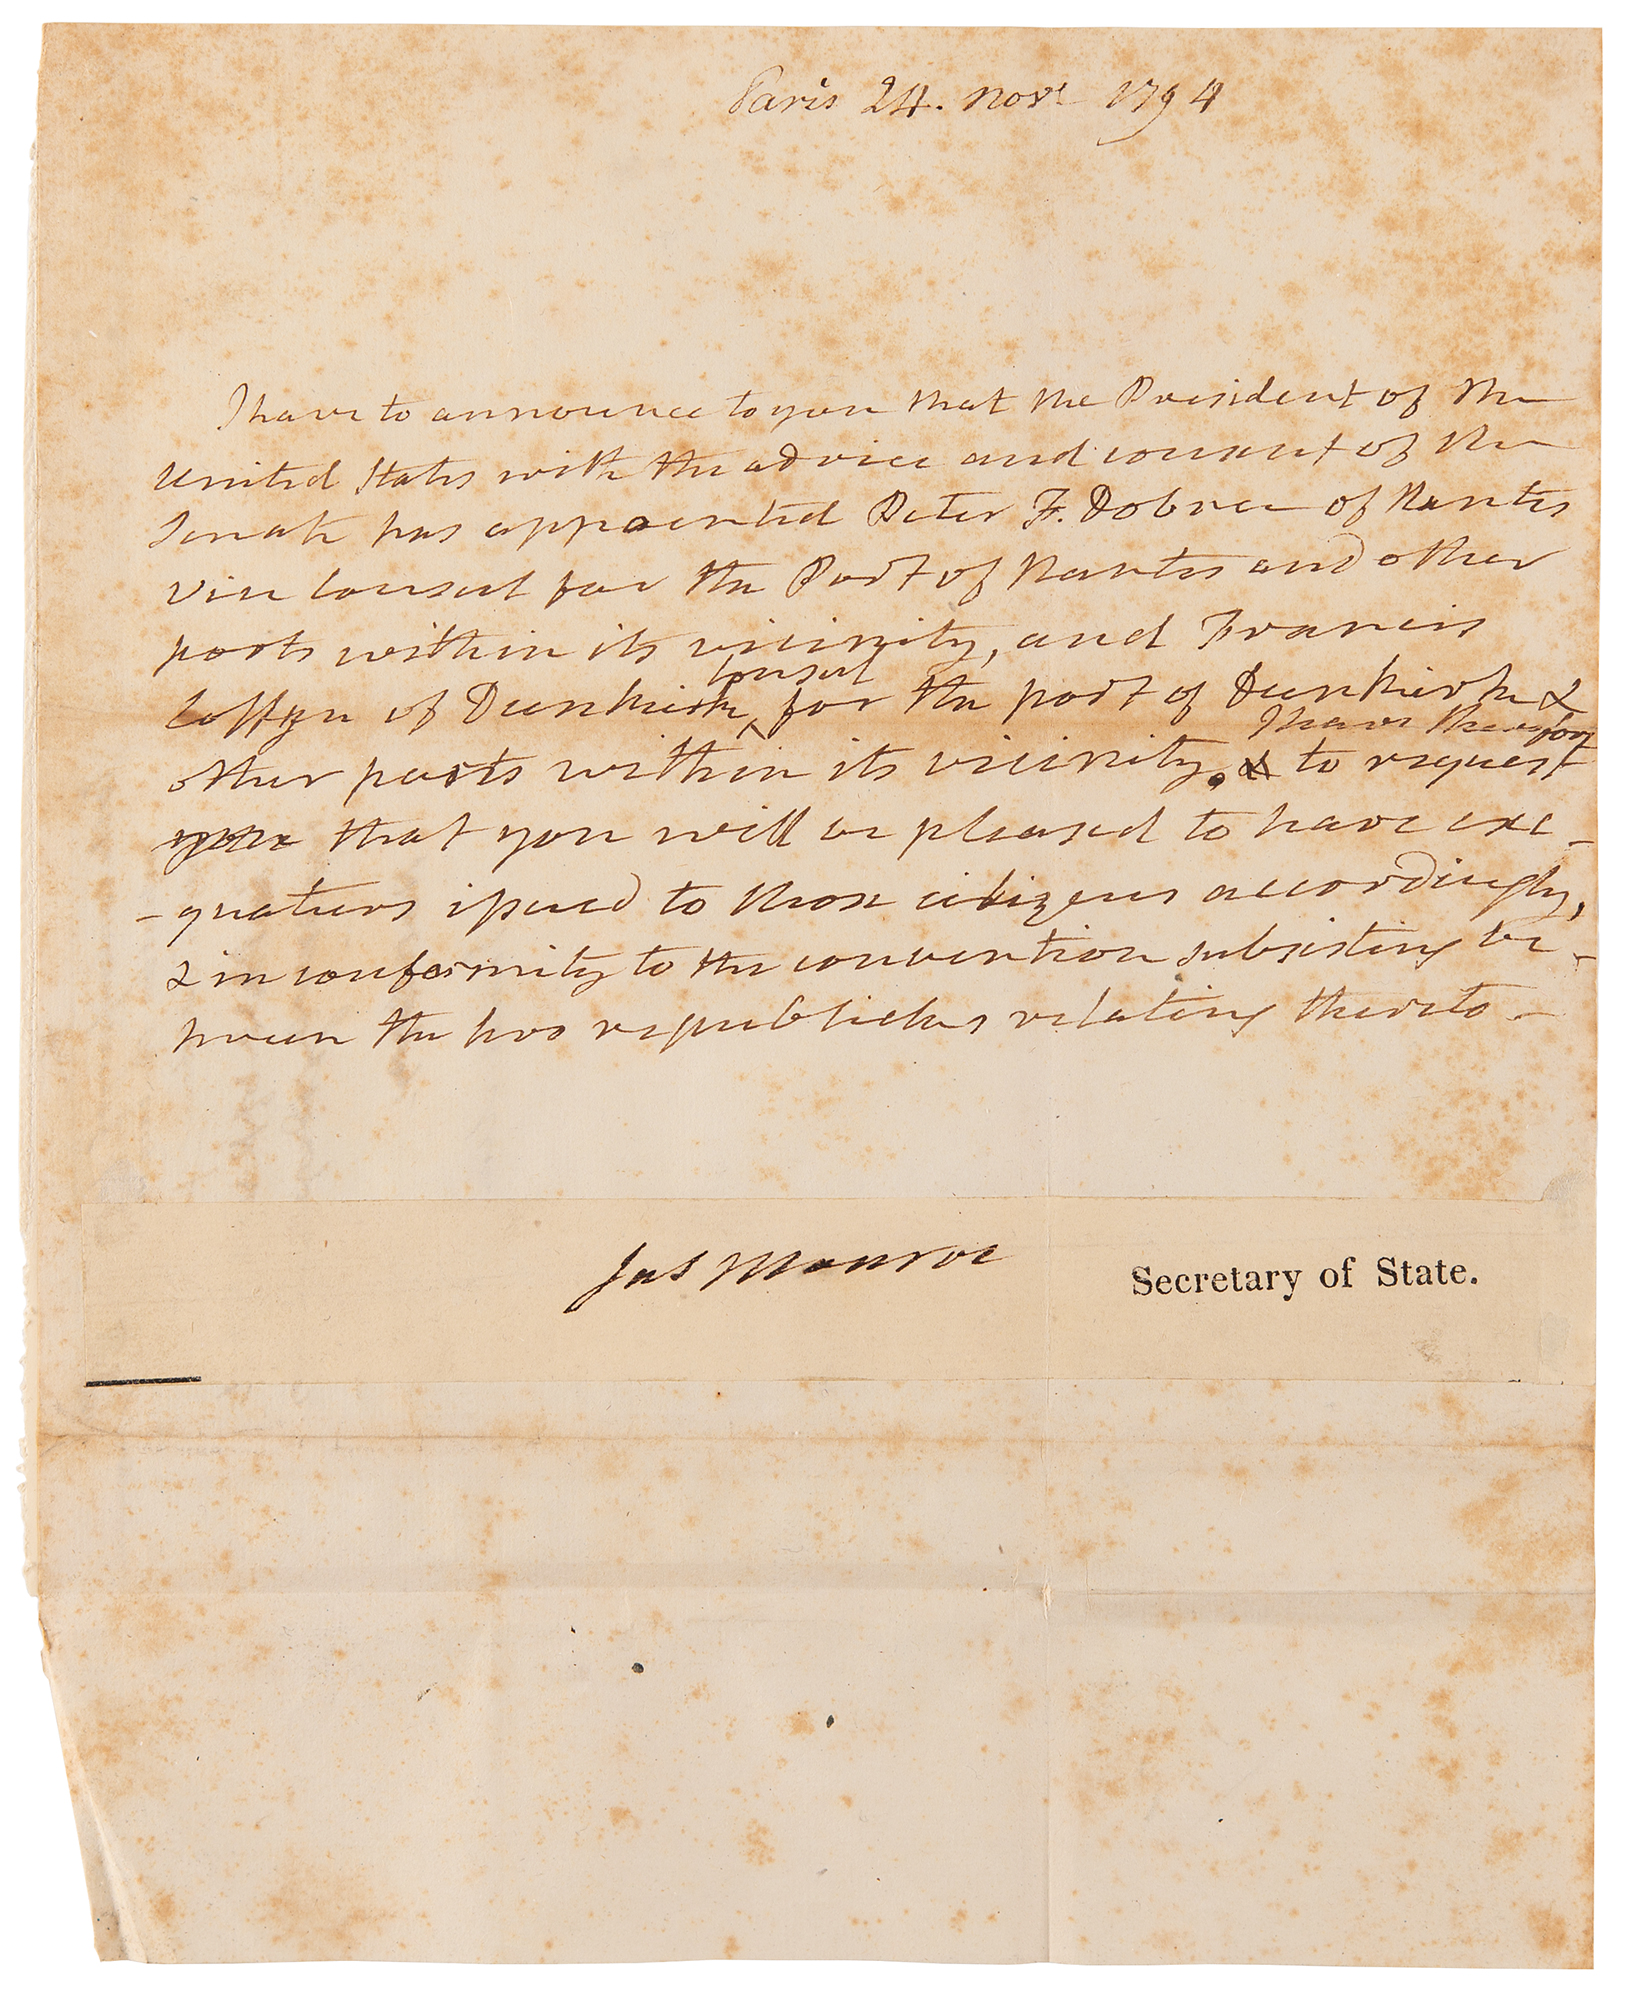 Paris 24. Novr 1794
I have to announce to you that the President of the
United States with the advice and consent of the
Senate has appointed Peter F. Dobree of Nantes
vice Consul for the Port of Nantes and other
ports within its vicinity, and Francis
Coffyn of Dunkirk Consul for the port of Dunkirk &
other ports within its vicinity. & I have therefore to request
you that you will be pleased to have exe-
-quaturs issued to those citizens accordingly,
& in conformity to the convention subsisting be-
tween the two republicks relating thereto -
Jas Monroe Secretary of State.